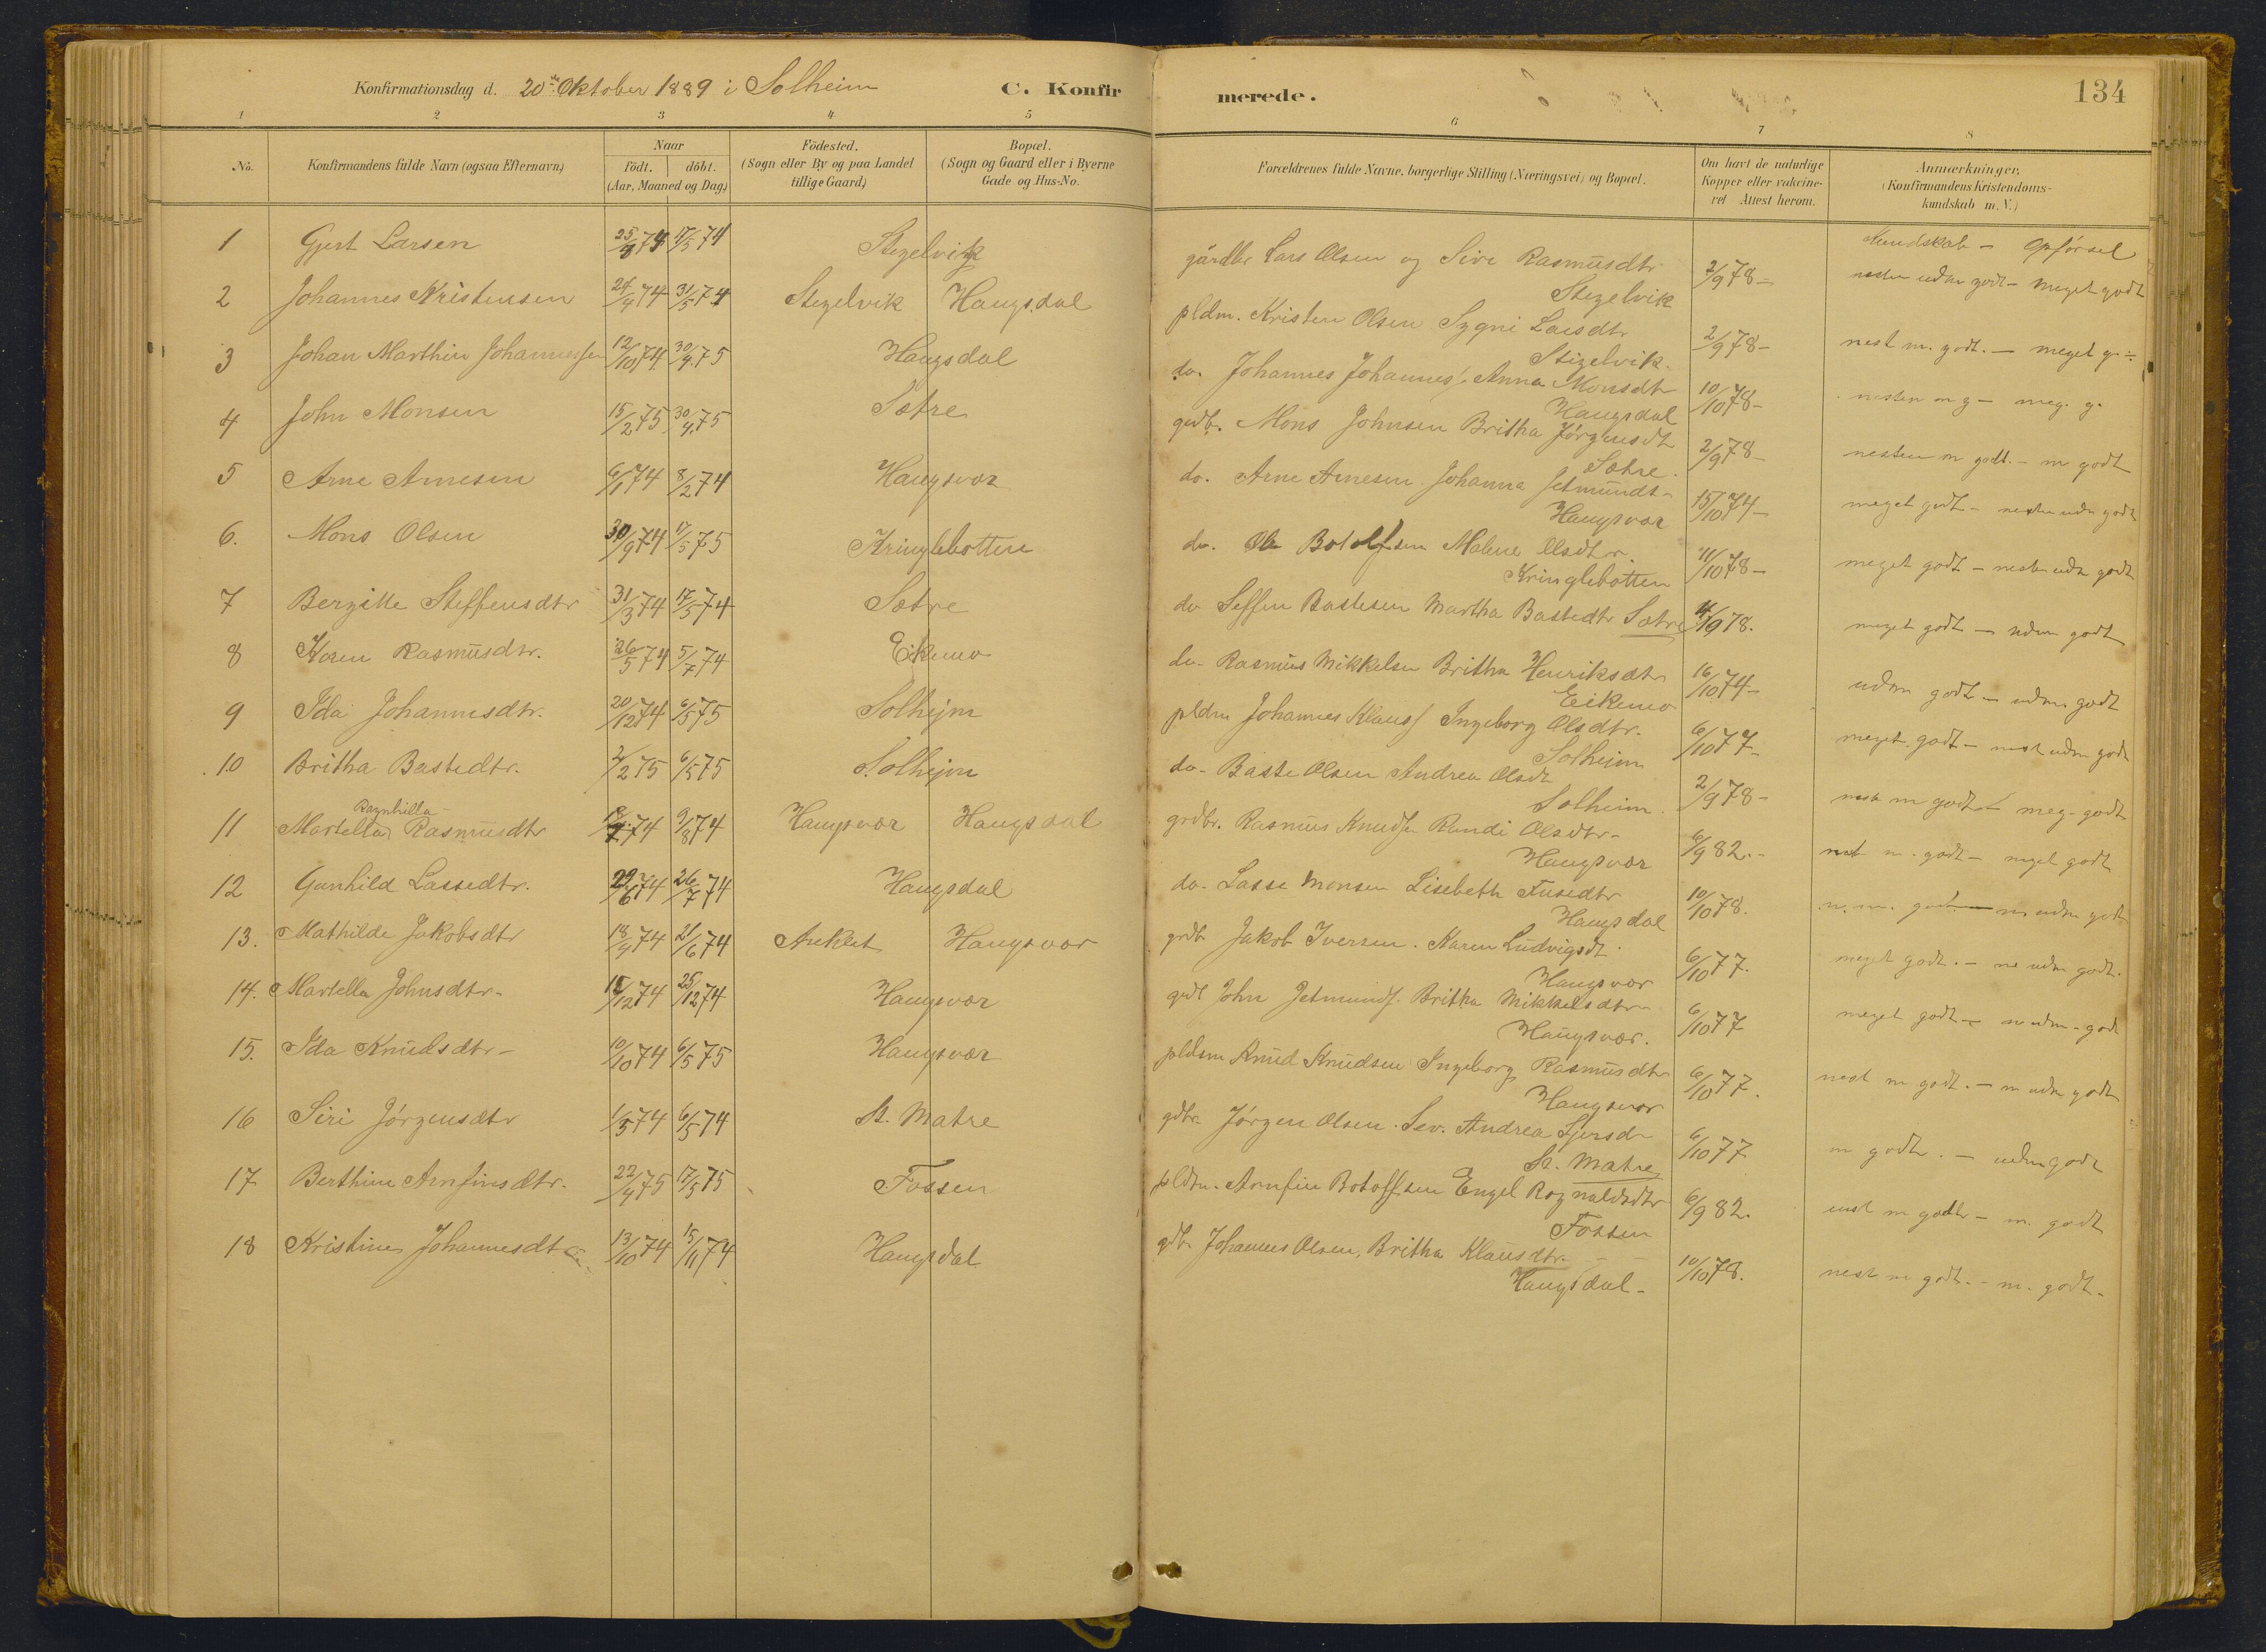 Konfirmationsdag d. 20de Oktober 1889 i Solheim C. Konfirmerede. 134
1 2 3 4 5 6 7 8
No. Konfirmandens fulde Navn (ogsaa Efternavn) Naar födt. döbt. (Aar, Maaned og Dag) Födested. (Sogn eller By og paa Landet tillige Gaard) Bopæl. (Sogn og Gaard eller i Byerne Gade og Hus-No. Forældrenes fulde Navne, borgerlige Stilling (Næringsvei) og Bopæl. Om havt de naturlige Kopper eller vakcineret Attest herom. Anmærkninger. (Konfirmandens Kristendomskundskab m. V.)
Kundskab - Opførsel
1 Gjert Larsen 74 17/5 74 Stegelvik gårdbr Lars Olsen og Siri Rasmusdtr 2/9 78- nesten udm godt - meget godt
Stegelvik
2 Johannes Kristensen 24/4 74 31/5 74 Stegelvik Haugsdal pldm. Kristen Olsen Sygni Larsdtr 2/9 78- nest m. godt. - meget g.
Stigelvik.
3 Johan Marthin Johannessen 12/10 74 30/4 75 Haugsdal do. Johannes Johanness Anna Monsdtr 10/10 78- nesten m g - meg. g.
Haugsdal
4 John Monsen 15/2 75 30/4 75 Sætre grdb. Mons Johnsen Britha Jørgensdt 2/9 78- nesten m godt. - m godt
Sætre.
5 Arne Arnesen 6/1 74 8/2 74 Haugsvær do. Arne Arnesen Johanna Jetmundt- 15/10 74- meget godt - nesten udm godt
Haugsvær
6. Mons Olsen 30/9 74 17/5 75 Kringlebotten do. Ole Botolfsen Malene Olsdtr. 11/10 78- meget godt - nesten udm godt
Kringlebotten
7 Bergitte Steffensdtr 31/3 74 17/5 74 Sætre do Seffen Bastesen Martha Bastedtr Sætre meget godt - udm godt
8 Karen Rasmusdtr. 26/5 74 5/7 74 Eikemo do- Rasmus Mikkelsen Britha Henriksdtr 16/10 74- udm godt - udm. godt
Eikemo
9 Ida Johannesdtr. 20/12 74 6/5 75 Solhejm pldm Johannes Klauss Ingeborg Olsdtr. 6/10 77- meget godt - nest udm godt
Solheim
10 Britha Bastedtr. 2/2 75 6/5 75 Solhejm do- Baste Olsen Andrea Olsdt 2/9 78- nest m godt - meg. godt
Solheim.
Ragnhilla
11 Martella Rasmusdtr 74 9/8 74 Haugsvær Haugsdal grdbr. Rasmus Knudsen Randi Olsdtr- 6/9 82.- nest m. godt - meget godt
Haugsvær
12 Gunhild Lassedtr. 29/6 74 26/7 74 Haugsdal do. Lasse Monsen Lisebeth Fusedtr 10/10 78. n. m. godt - m udm godt
Haugsdal
13. Mathilde Jakobsdtr 18/4 74 21/6 74 Haugsvær grdb Jakob Iversen. Karen Ludvigsdt. 6/10 77. meget godt. - ne udm godt.
Haugsvær
14. Martella Johnsdtr- 74 25/12 74 Haugsvær grdb John Jetmunds. Britha Mikkelsdtr- 6/10 77 meget godt - n udm - godt
Haugsvær.
15. Ida Knudsdtr- 10/10 74 6/5 75 Haugsvær pldsm Knud Knudsen Ingeborg Rasmusdtr 6/10 77. nest m godt. - m udm godt
Haugsvær
16 Siri Jørgensdtr 1/5 74 6/5 74 St. Matre gdbr. Jørgen Olsen. Sev. Andrea 6/10 77 m godt. - udm godt
St. Matre
17 Berthine Arnfinsdtr. 22/4 75 17/5 75 Fossen pldm. Arnfin Botolfsen Engel Ragnaldsdtr 6/9 82. nest m godt - m. godt
Fossen
18 Kristine Johannesdtr 13/10 74 15/11 74 Haugsdal gdb Johannes Olsen, Britha Klausdtr. 10/10 78. nest m godt. - m. godt.
Haugsdal-